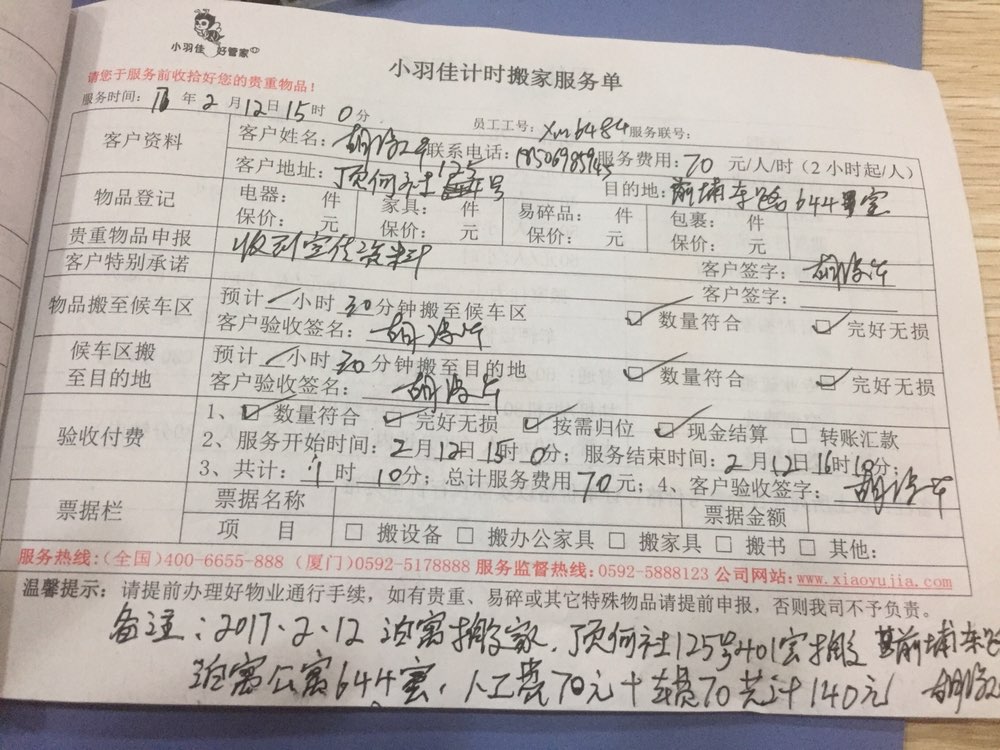 小羽佳 好管家
小羽佳计时搬家服务单
请您于服务前收拾好您的贵重物品！
服务时间： 年 2 月 12 日 15 时 0 分 员工工号：Xm6484 服务联号：
客户资料 客户姓名：胡 联系电话：18506985945 服务费用：70 元/人/时（2 小时起/人）
客户地址：顶何社125号 目的地：前埔东路644室
物品登记 电器： 件 家具： 件 易碎品： 件 包裹： 件
保价： 元 保价： 元 保价： 元 保价： 元
贵重物品申报 收到宣传资料 客户签字：胡
客户特别承诺 客户签字：
物品搬至候车区 预计 / 小时 30 分钟搬至候车区 ☑ 数量符合 ☑ 完好无损
客户验收签名：胡
候车区搬至目的地 预计 / 小时 30 分钟搬至目的地 ☑ 数量符合 ☑ 完好无损
客户验收签名：胡
验收付费 1、☑ 数量符合 ☑ 完好无损 ☑ 按需归位 ☑ 现金结算 □ 转账汇款
2、服务开始时间：2 月 12 日 15 时 0 分；服务结束时间：2 月 12 日 16 时 10 分；
3、共计：1 时 10 分；总计服务费用 70 元；4、客户验收签字：胡
票据栏 票据名称 票据金额
项 目 □ 搬设备 □ 搬办公家具 □ 搬家具 □ 搬书 □ 其他：
服务热线：（全国）400-6655-888（厦门）0592-5178888 服务监督热线：0592-5888123 公司网站：www.xiaoyujia.com
温馨提示：请提前办理好物业通行手续，如有贵重、易碎或其它特殊物品请提前申报，否则我司不予负责。
备注：2017.2.12 泊寓搬家，顶何社125号401室搬 前埔东路
泊寓公寓644室，人工费70元+车费70元计140元 胡